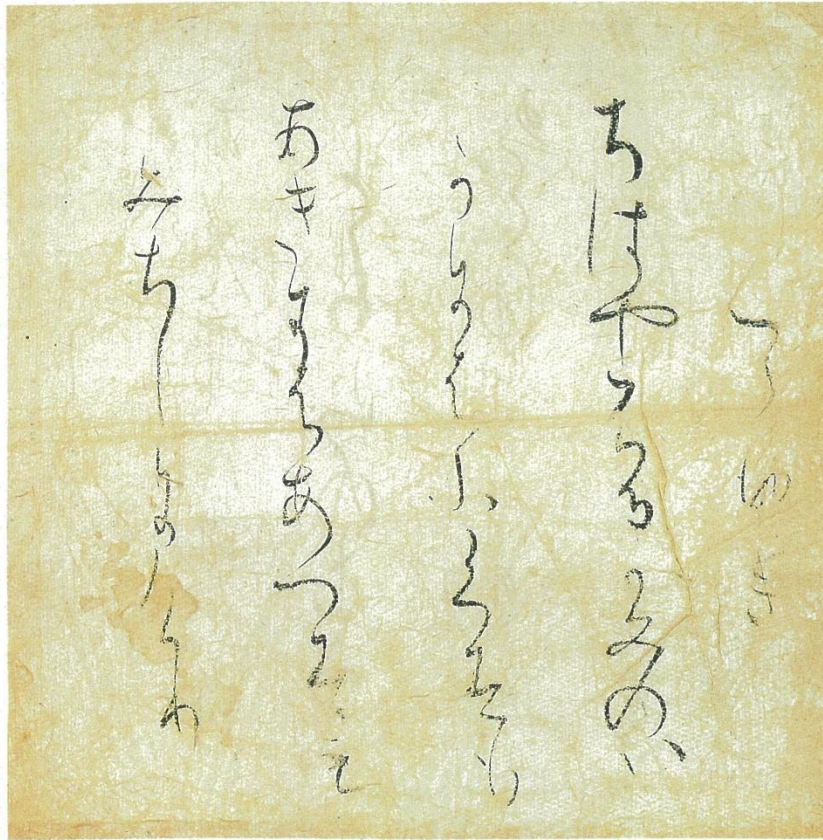 つらゆき
ちはやふるかみのい
かきにはふくすも
あきにはあへすも
みちしにけり